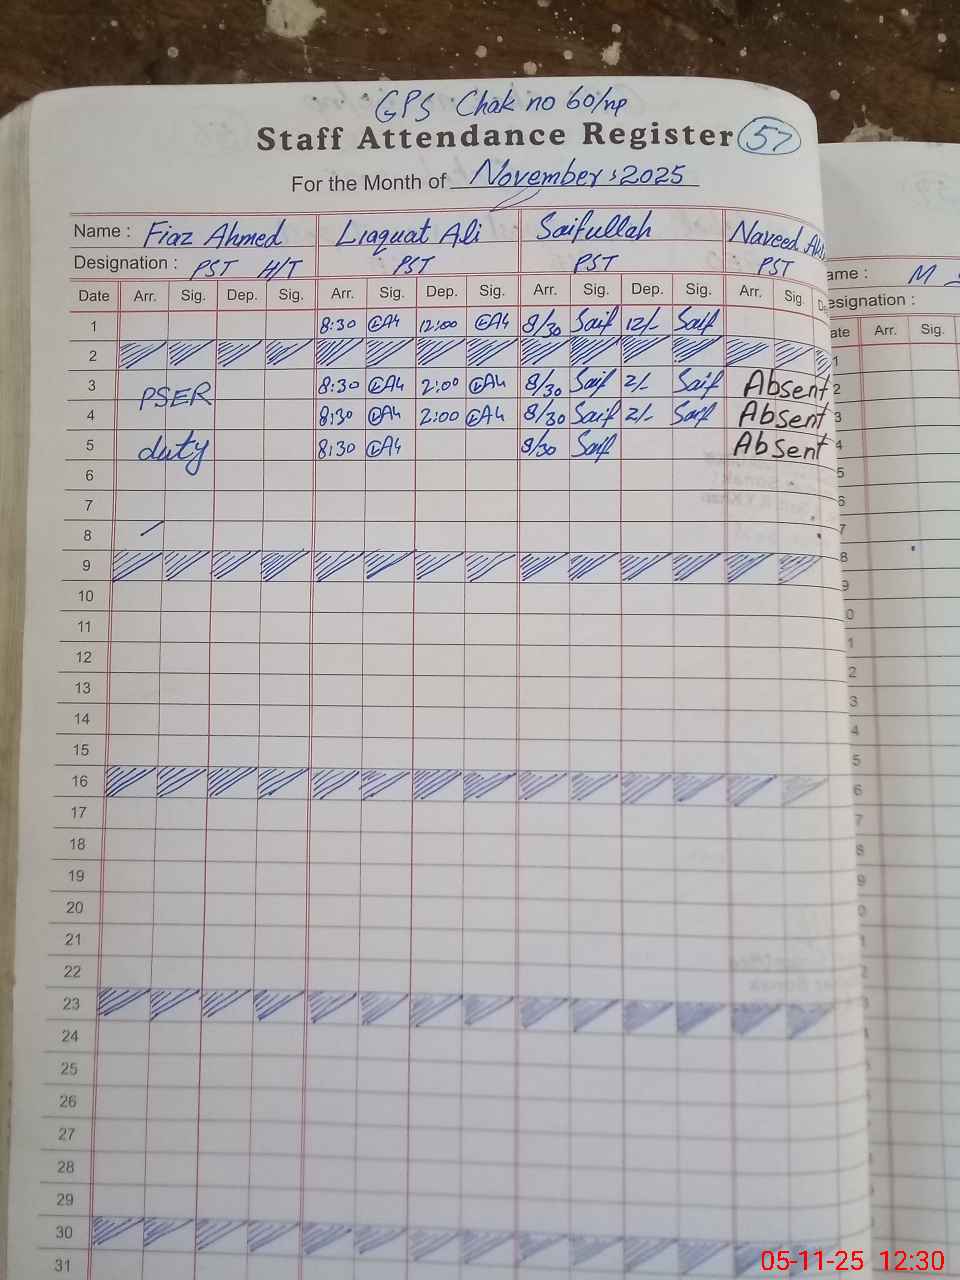 GPS Chak no 60/np
Staff Attendance Register 57
For the Month of November, 2025
Name : Fiaz Ahmed Liaquat Ali Saifullah Naveed
Designation : PST H/T PST PST PST
Date Arr. Sig. Dep. Sig. Arr. Sig. Dep. Sig. Arr. Sig. Dep. Sig. Arr. Sig.
1 8:30 12:00 8/30 Saif 12/- Saif
2
3 PSER 8:30 2:00 8/30 Saif 2/- Saif Absent
4 8:30 2:00 8/30 Saif 2/- Saif Absent
5 duty 8:30 8/30 Saif Absent
6
7
8
9
10
11
12
13
14
15
16
17
18
19
20
21
22
23
24
25
26
27
28
29
30
31
ame : M
esignation :
ate Arr. Sig.
1
2
3
4
5
6
7
8
9
0
1
2
3
4
5
6
7
8
9
0
1
05-11-25 12:30